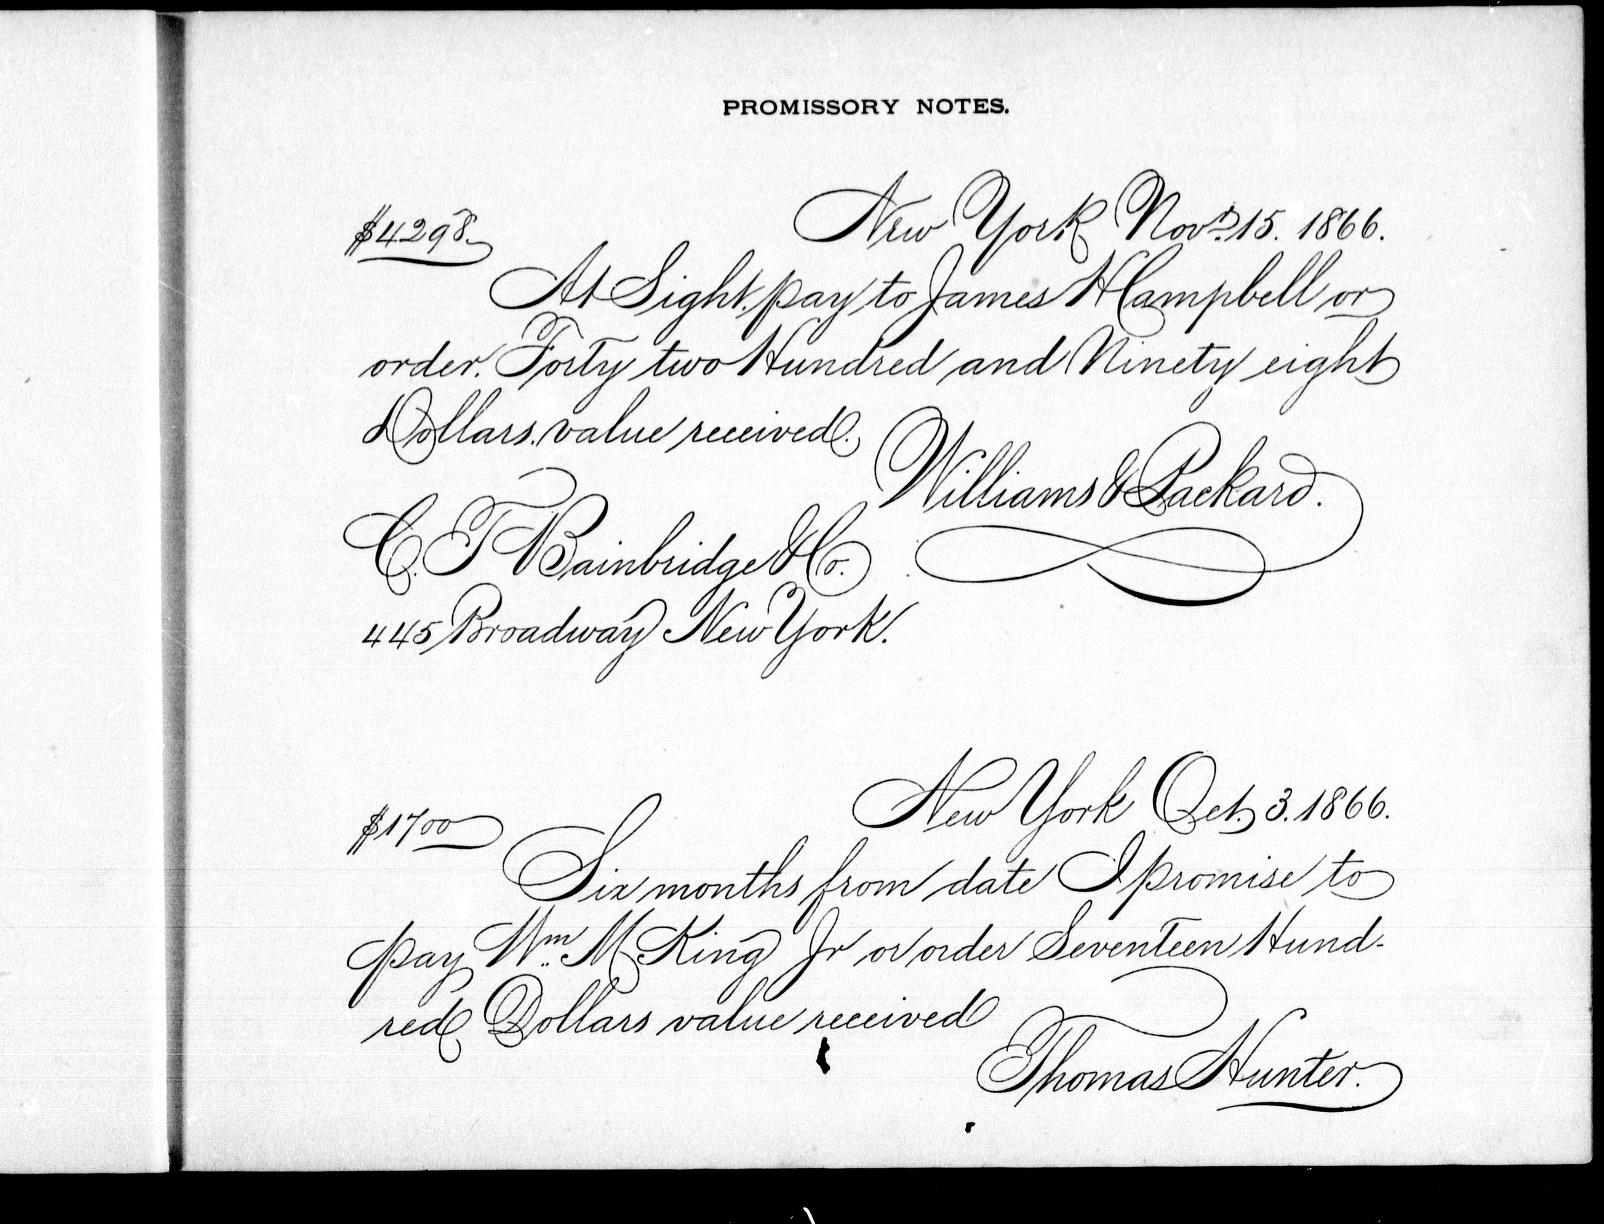 PROMISSORY NOTES.
New York Novr. 15. 1866.
$4298.
At Sight, pay to James H Campbell or
order. Forty two Hundred and Ninety eight
Dollars. value received.
Williams & Packard.
C. T. Bainbridge & Co.
445 Broadway New York.
New York Oct. 3. 1866.
$1700
Six months from date I promise to
pay Wm. M King Jr or order Seventeen Hund-
red Dollars value received
Thomas Hunter.